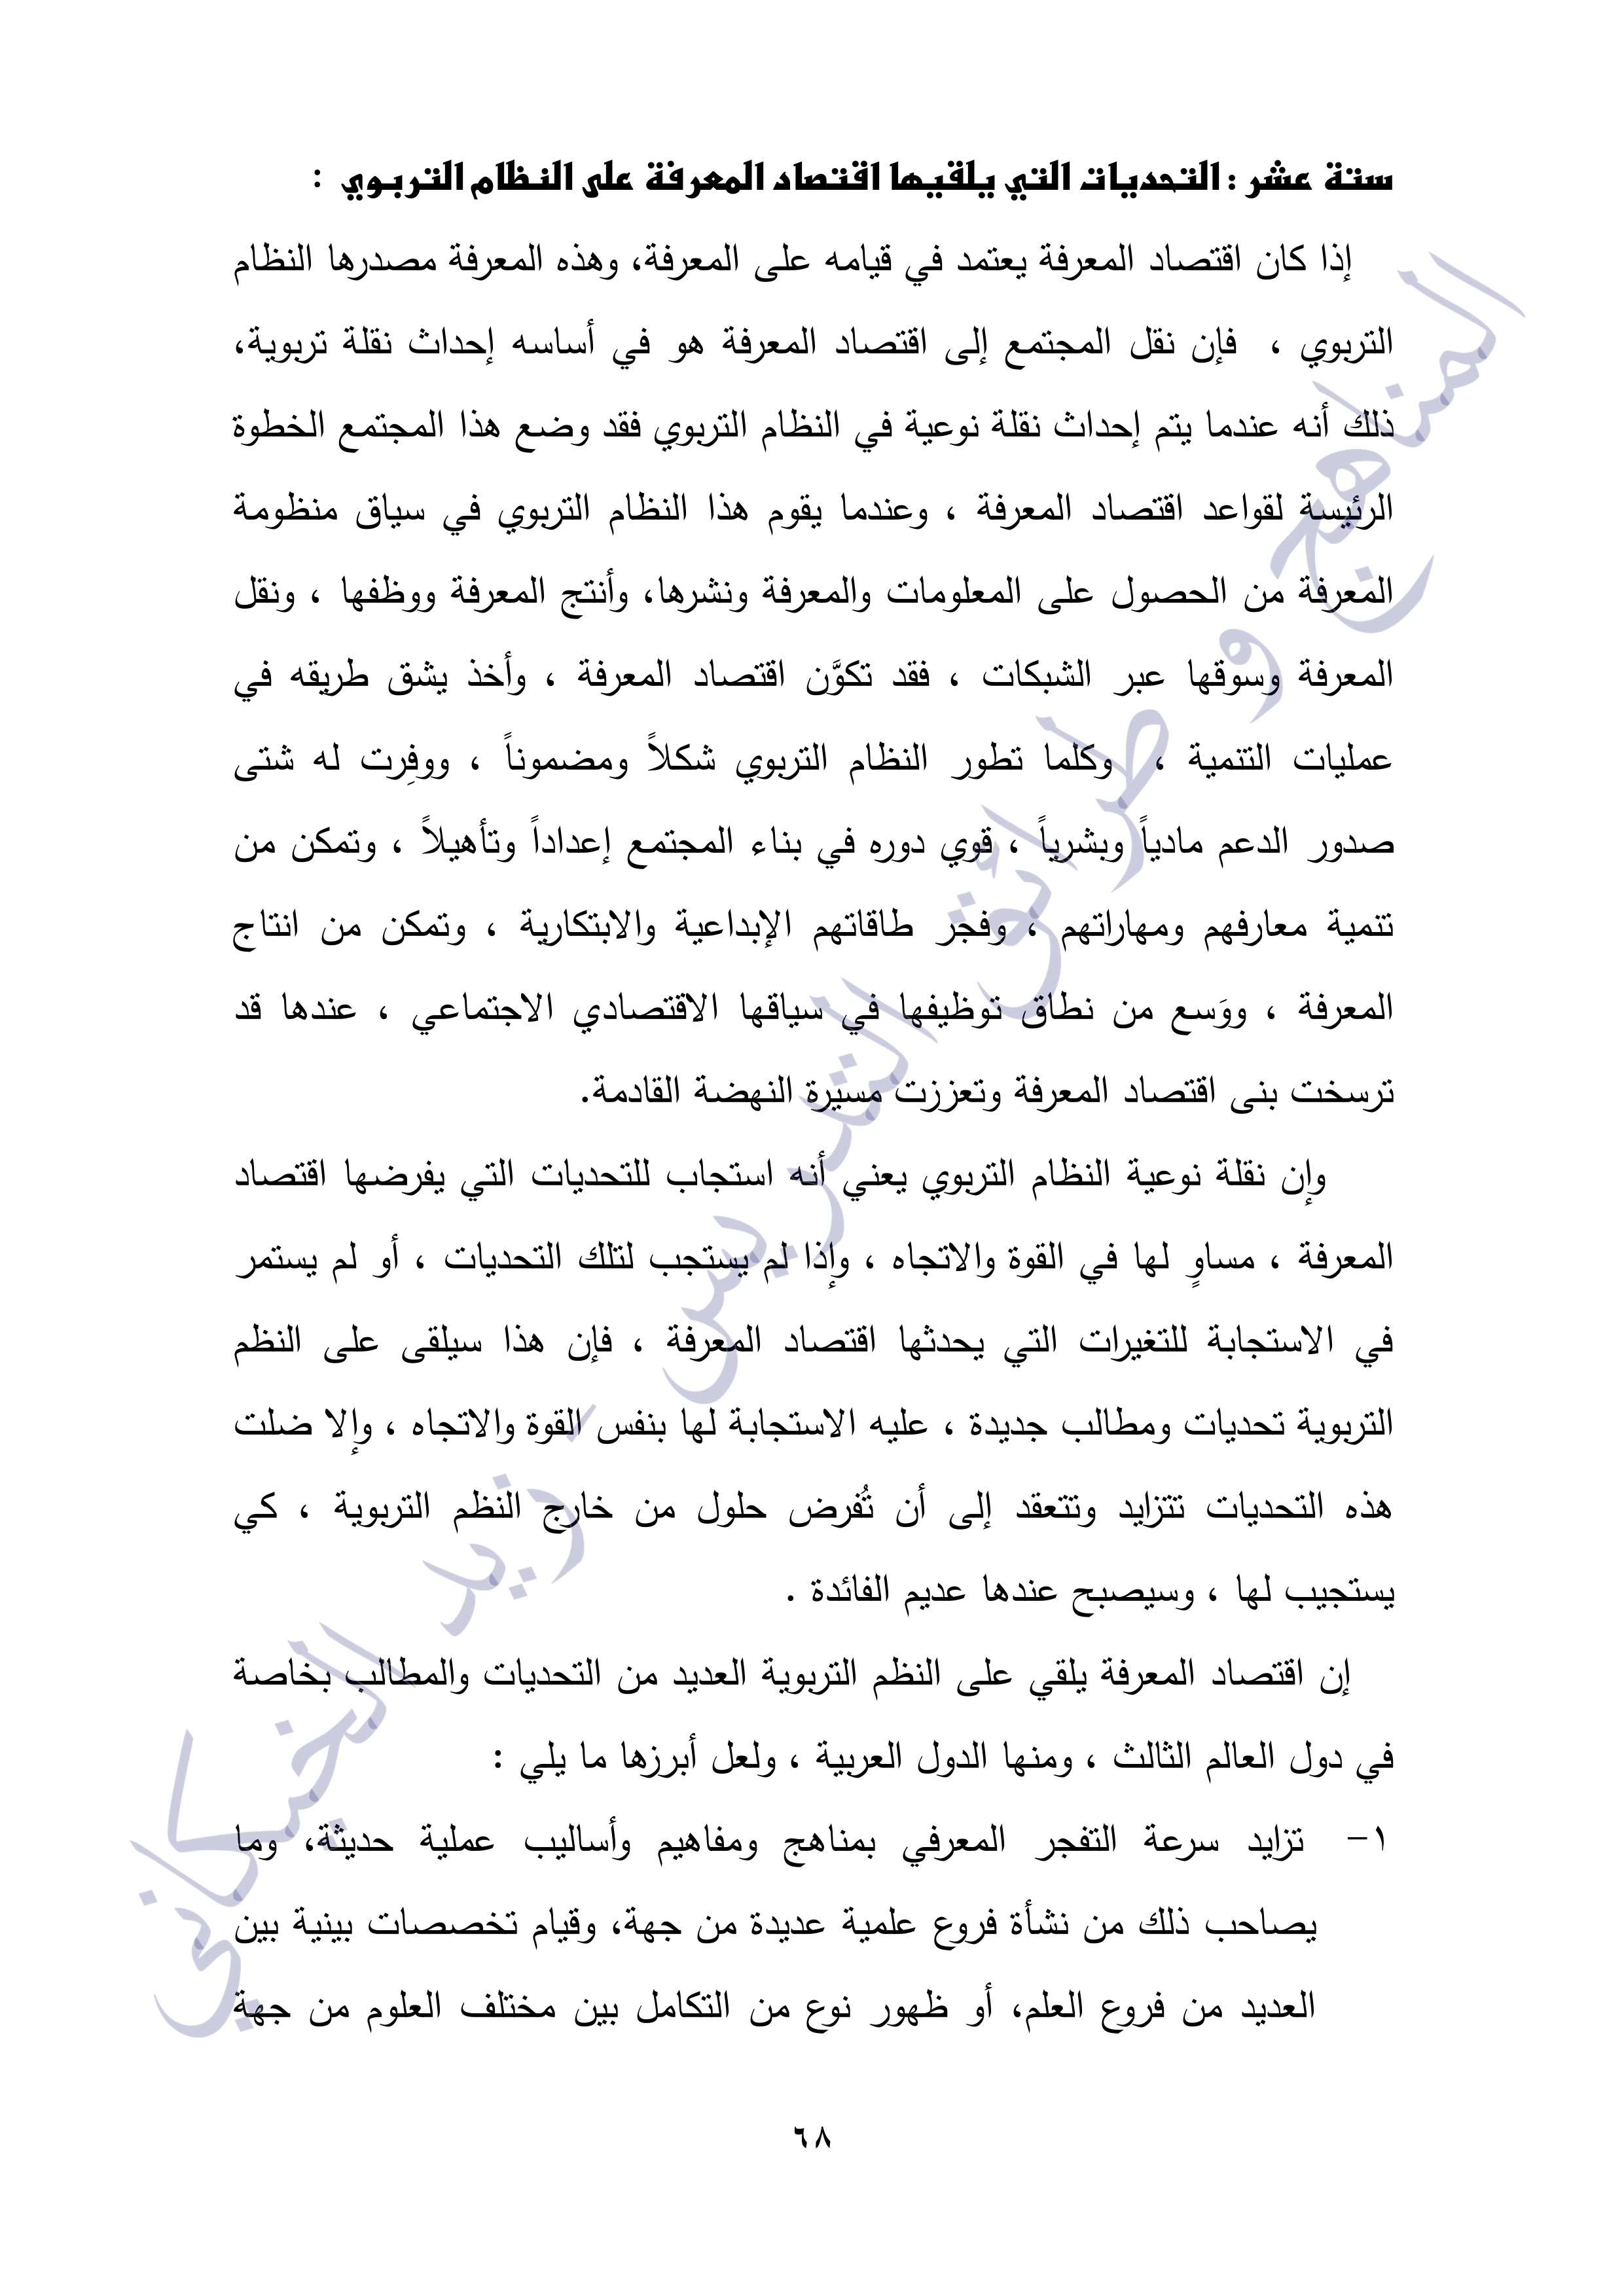 ستة عشر : التحديات التي يلقيها اقتصاد المعرفة على النظام التربوي :
إذا كان اقتصاد المعرفة يعتمد في قيامه على المعرفة، وهذه المعرفة مصدرها النظام
التربوي ، فإن نقل المجتمع إلى اقتصاد المعرفة هو في أساسه إحداث نقلة تربوية،
ذلك أنه عندما يتم إحداث نقلة نوعية في النظام التربوي فقد وضع هذا المجتمع الخطوة
الرئيسة لقواعد اقتصاد المعرفة ، وعندما يقوم هذا النظام التربوي في سياق منظومة
المعرفة من الحصول على المعلومات والمعرفة ونشرها، وأنتج المعرفة ووظفها ، ونقل
المعرفة وسوقها عبر الشبكات ، فقد تكوَّن اقتصاد المعرفة ، وأخذ يشق طريقه في
عمليات التنمية ، وكلما تطور النظام التربوي شكلاً ومضموناً ، ووفِرت له شتى
صدور الدعم مادياً وبشرياً ، قوي دوره في بناء المجتمع إعداداً وتأهيلاً ، وتمكن من
تنمية معارفهم ومهاراتهم ، وفجر طاقاتهم الإبداعية والابتكارية ، وتمكن من انتاج
المعرفة ، ووَسع من نطاق توظيفها في سياقها الاقتصادي الاجتماعي ، عندها قد
ترسخت بنى اقتصاد المعرفة وتعززت مسيرة النهضة القادمة.
وإن نقلة نوعية النظام التربوي يعني أنه استجاب للتحديات التي يفرضها اقتصاد
المعرفة ، مساوٍ لها في القوة والاتجاه ، وإذا لم يستجب لتلك التحديات ، أو لم يستمر
في الاستجابة للتغيرات التي يحدثها اقتصاد المعرفة ، فإن هذا سيلقى على النظم
التربوية تحديات ومطالب جديدة ، عليه الاستجابة لها بنفس القوة والاتجاه ، وإلا ضلت
هذه التحديات تتزايد وتتعقد إلى أن تُفرض حلول من خارج النظم التربوية ، كي
يستجيب لها ، وسيصبح عندها عديم الفائدة .
إن اقتصاد المعرفة يلقي على النظم التربوية العديد من التحديات والمطالب بخاصة
في دول العالم الثالث ، ومنها الدول العربية ، ولعل أبرزها ما يلي :
١- تزايد سرعة التفجر المعرفي بمناهج ومفاهيم وأساليب عملية حديثة، وما
يصاحب ذلك من نشأة فروع علمية عديدة من جهة، وقيام تخصصات بينية بين
العديد من فروع العلم، أو ظهور نوع من التكامل بين مختلف العلوم من جهة
٦٨
المناهج و طرائق التدريس - زيد الخيكاني